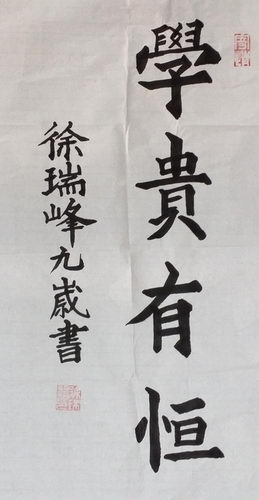 學貴有恒
徐瑞峰九歲書